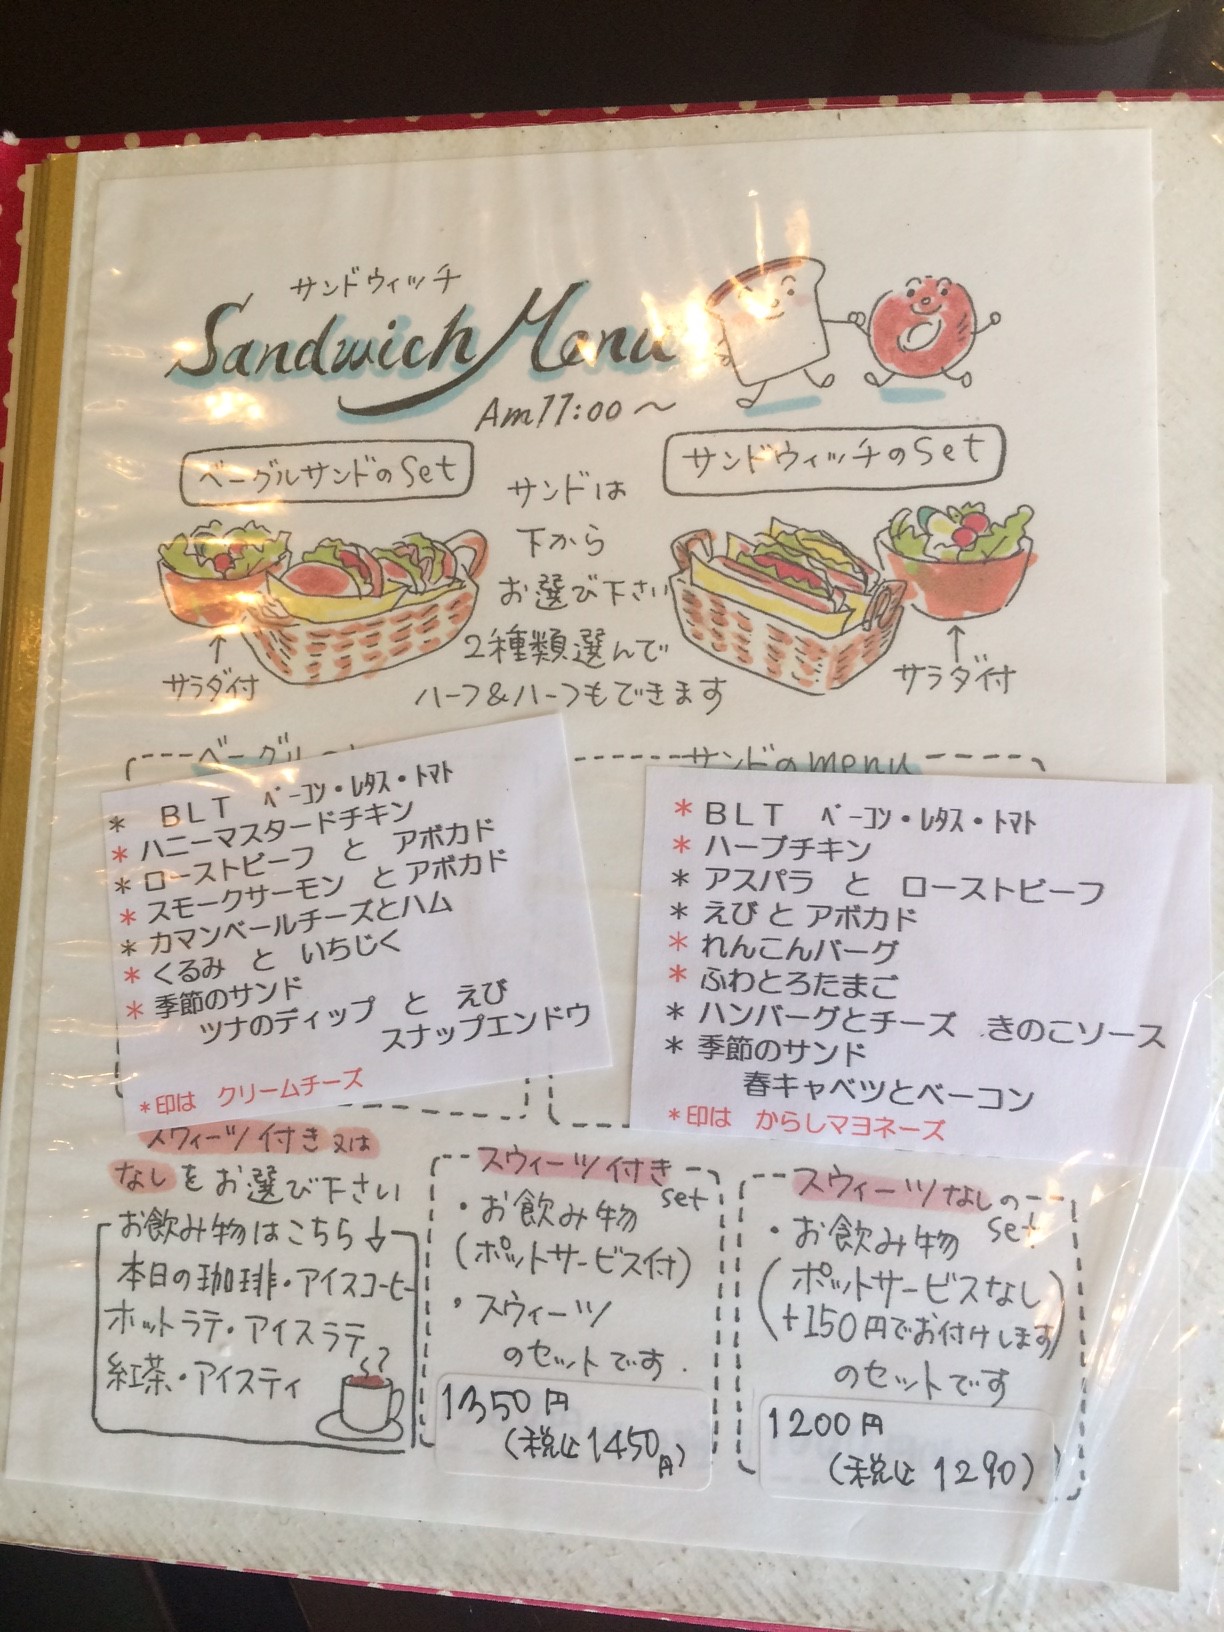 サンドウィッチ
Sandwich Menu
Am11:00〜
ベーグルサンドのset
サンドウィッチのset
サンドは
下から
お選び下さい
2種類選んで
ハーフ&ハーフもできます
↑
サラダ付
↑
サラダ付
ベーグル
* BLT ベーコン・レタス・トマト
* ハニーマスタードチキン
* ローストビーフ と アボカド
* スモークサーモン とアボカド
* カマンベールチーズとハム
* くるみ と いちじく
* 季節のサンド
ツナのディップ と えび
スナップエンドウ
*印は クリームチーズ
サンドのmenu
* BLT ベーコン・レタス・トマト
* ハーブチキン
* アスパラ と ローストビーフ
* えび と アボカド
* れんこんバーグ
* ふわとろたまご
* ハンバーグとチーズ きのこソース
* 季節のサンド
春キャベツとベーコン
*印は からしマヨネーズ
スウィーツ付き又は
なしをお選び下さい
お飲み物はこちら↓
本日の珈琲・アイスコーヒー
ホットラテ・アイスラテ
紅茶・アイスティ
スウィーツ付き
set
・お飲み物
(ポットサービス付)
・スウィーツ
のセットです.
1350円
(税込1450円)
スウィーツなしの
set
・お飲み物
(ポットサービスなし
+150円でお付けします)
のセットです
1200円
(税込 1290)